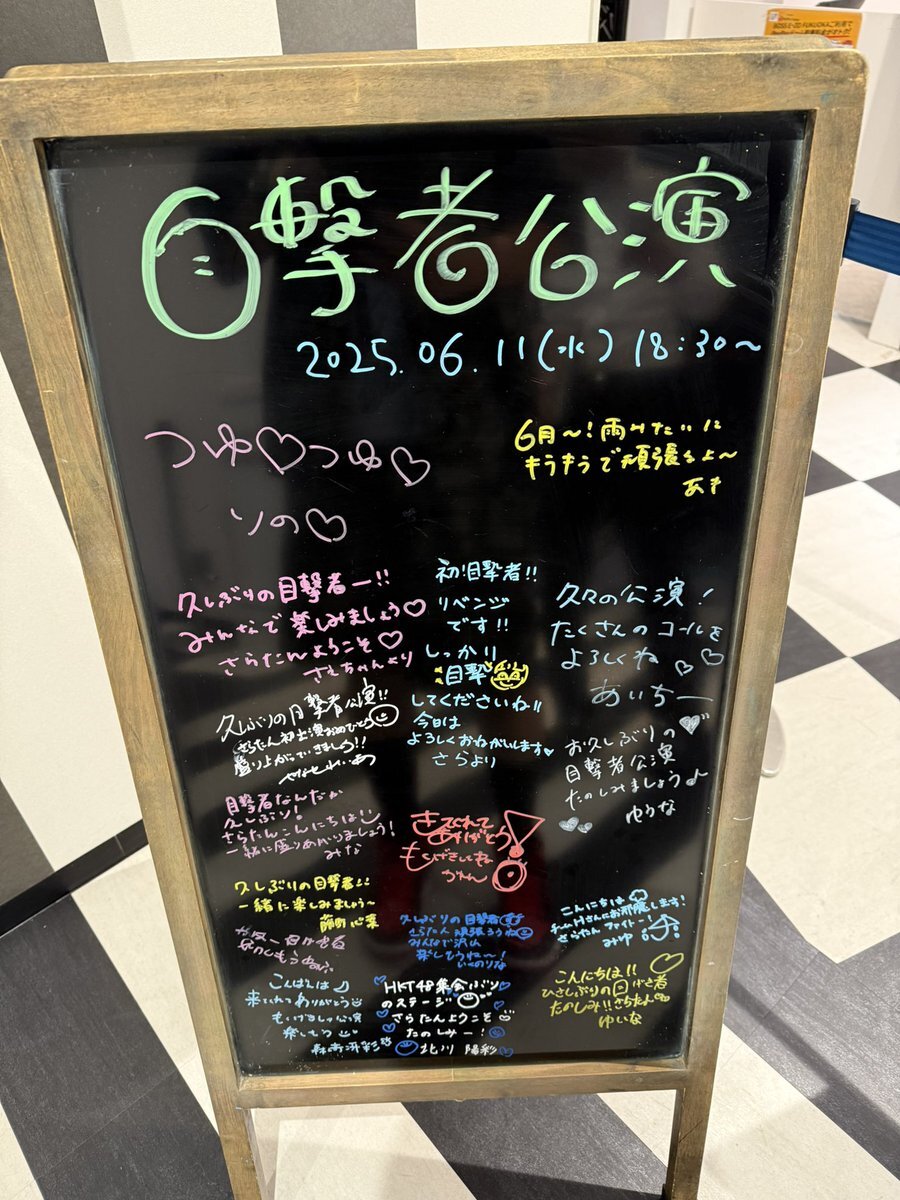 BOSS E・ZO FUKUOKAご利用で
目撃者公演
2025.06.11(水) 18:30~
つゆ♡つゆ♡
りの♡
6月~!雨みたいに
キラキラで頑張るよ~
あき
久しぶりの目撃者ー!!
みんなで楽しみましょう♡
さらたんようこそ♡
さえちゃんより
初!目撃者!!
リベンジ
です!!
しっかり
目撃
してくださいね!!
今日は
よろしくおねがいします♥
さらより
久々の公演!
たくさんのコールを
よろしくね♡♡
あいちー
久しぶりの目撃者公演!!
さらたん初出演おめでとう
盛り上がっていきましょう!!
お久しぶりの
目撃者公演
たのしみましょう♪
ゆうな
目撃者なんだか
久しぶり!
さらたんこんにちは
一緒に盛りあがりましょう!
みな
きてくれて
ありがとう
もくげきしてね
かれん
久しぶりの目撃者!!
一緒に楽しみましょう~
久しぶりの目撃者
さらたん頑張ろうね
みんなで沢山
楽しもうね~!
いくのりな
こんにちは
チームHさんにお邪魔します!
さらたん ファイトー!
みゆ
こんばんは
来てくれてありがとう
もくげきしゃ公演
楽しもう
HKT48集会ぶり
のステージ
さらたんようこそ
たのしみー!
北川 陽彩
こんにちは!!
ひさしぶりの目げき者
たのしみ!!さらたん
ゆいな